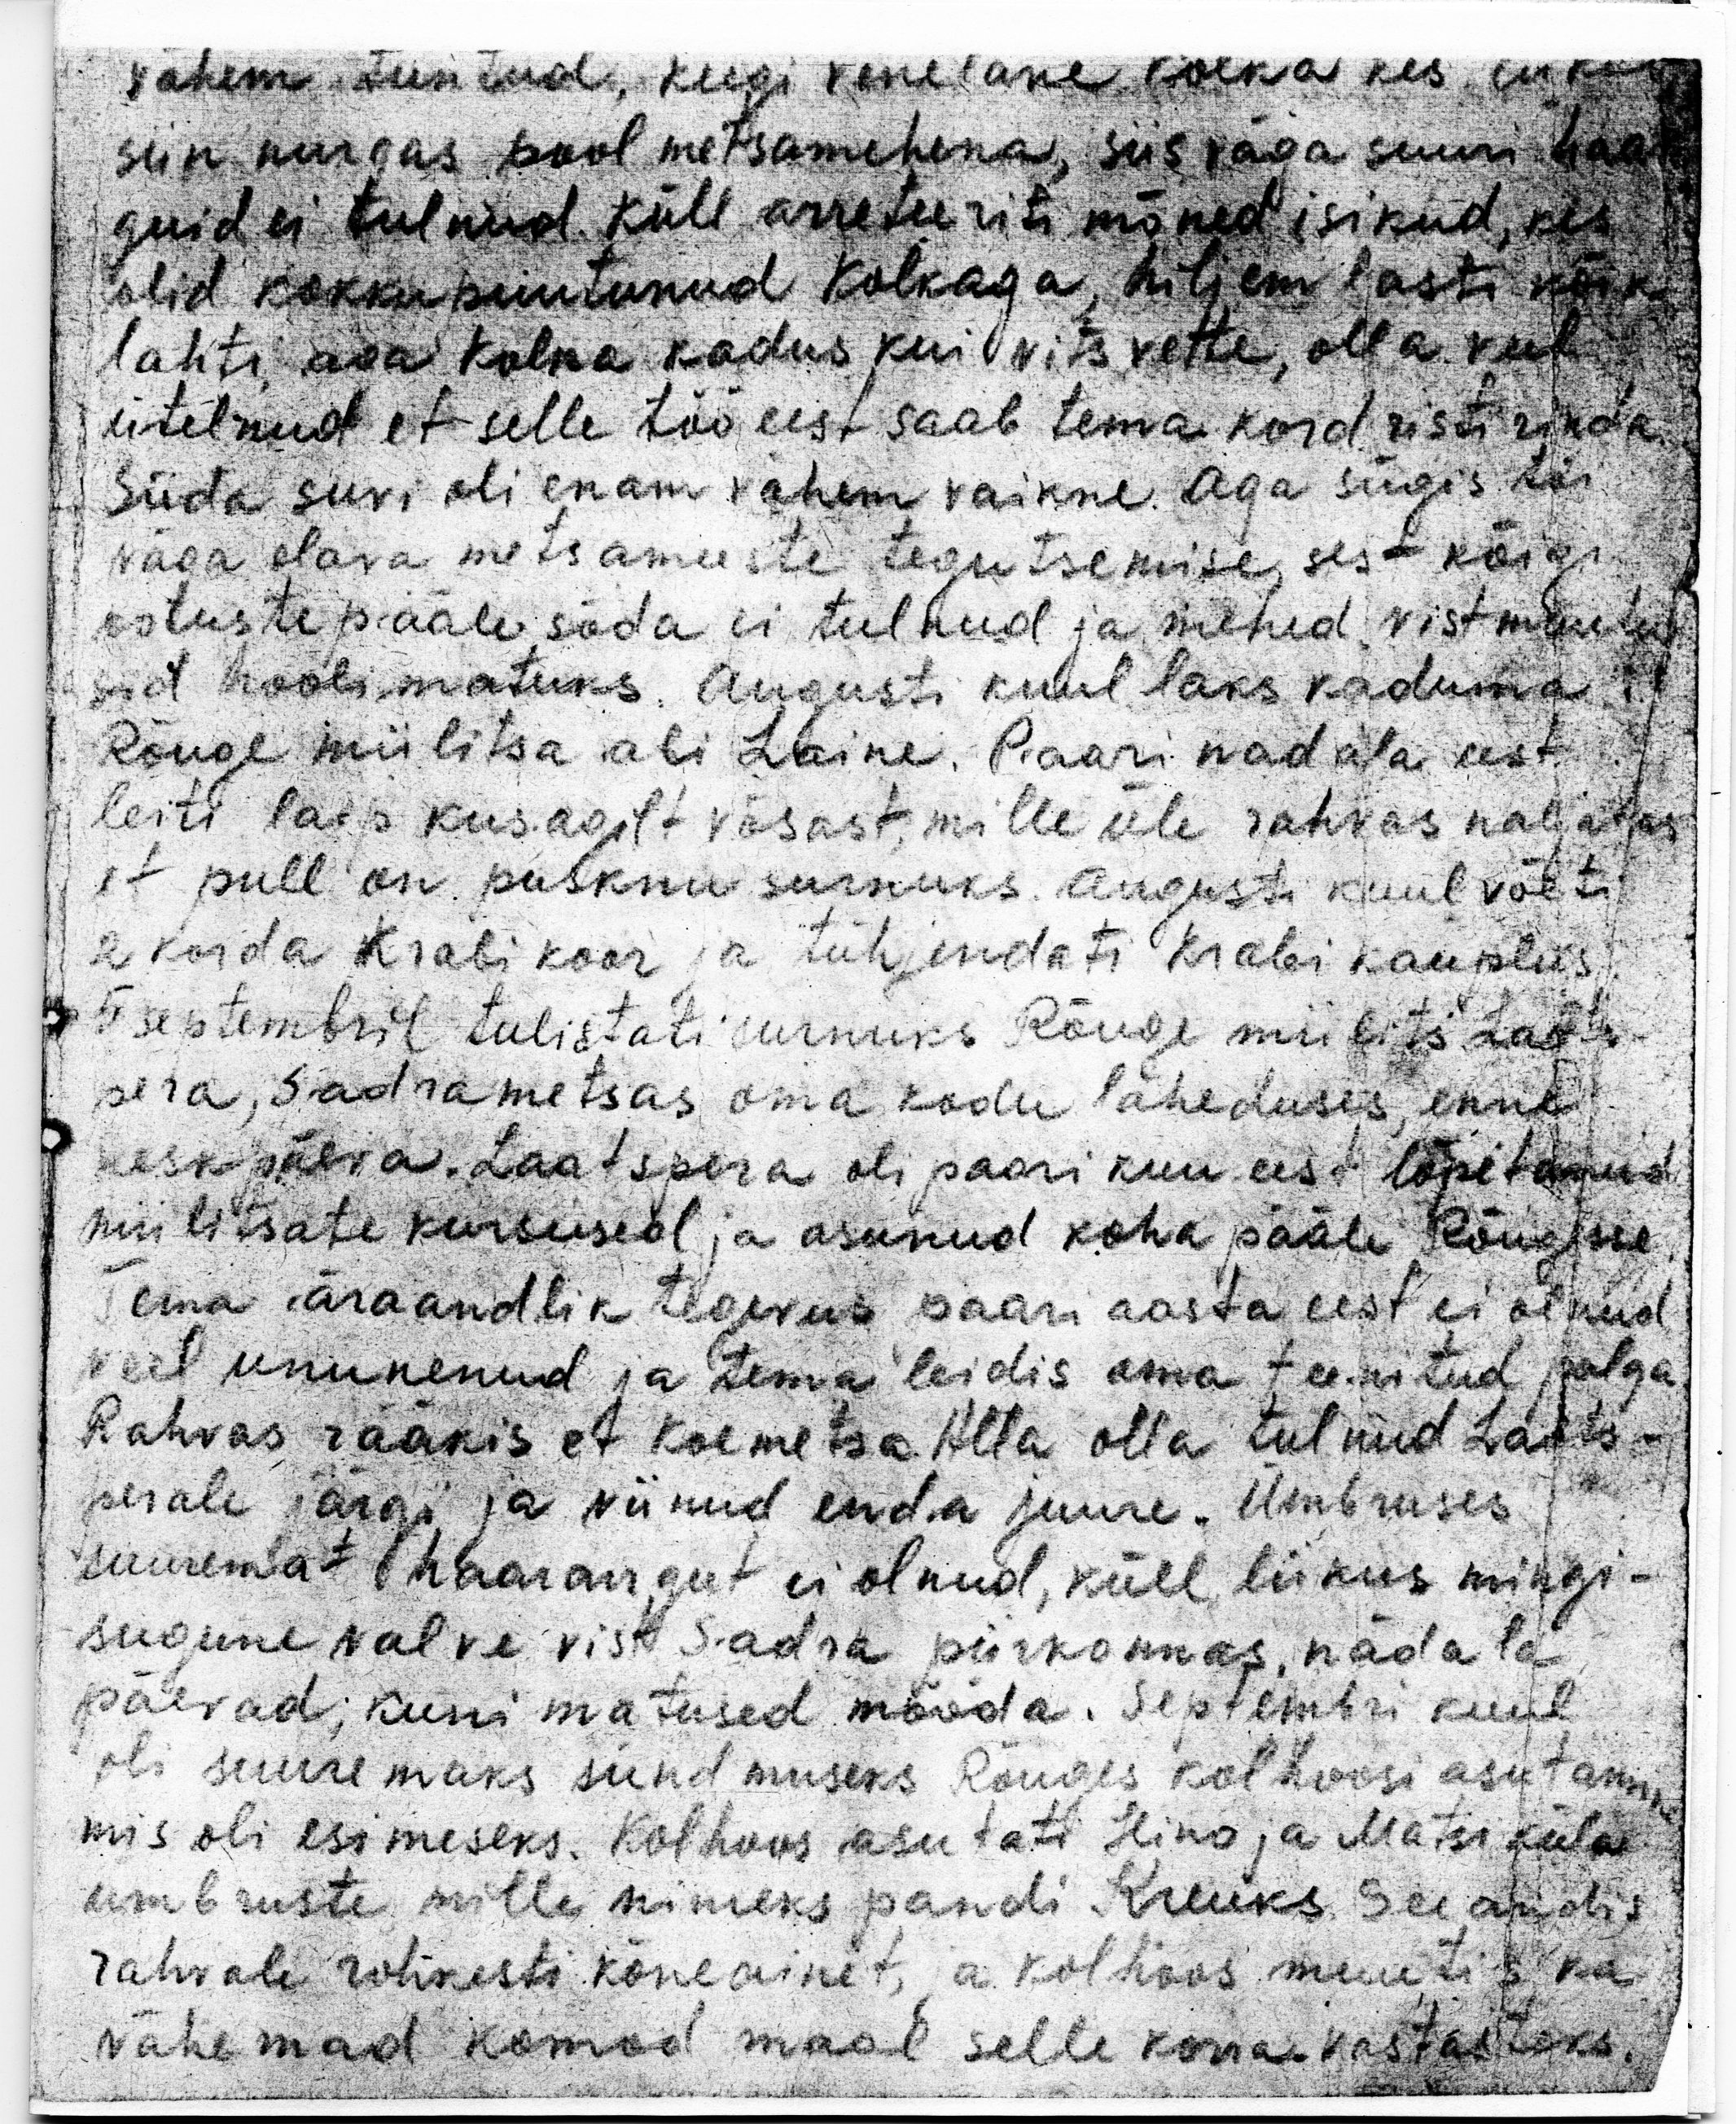 vähem tuntud, keegi venelane Kolka kes liikus
siin nurgas pool metsamehena, siis väga suuri haa
guid ei tulnud. Küll arreteeriti mõned isikud, kes
olid kokkupuutunud Kolkaga, hiljem lasti kõik
lahti, aga Kolka kadus kui vits vette, olla veel
ütelnud et selle töö eest saab tema kord risti rinda.
Süda suvi oli enam vähem vaikne. Aga sügis tõi
väga elava metsameeste tegutsemise, sest kõigi
ootuste pääle sõda ei tulnud ja mehed vist muutu
sid hoolimatuks. Augusti kuul läks kaduma
Rõuge miilitsa abi Laine. Paari nädala eest
leiti laip kusagilt võsast, mille üle rahvas naljatas
et pull on pusknu surnuks. Augusti kuul võeti
2 korda Krabi koor ja tühjendati Krabi kauplus.
septembril tulistati surnuks Rõuge miilits Laats-
pera, Sadrametsas oma kodu läheduses, enne
keskpäeva. Laatspera oli paari kuu eest lõpetanud
miilitsate kursused ja asunud koha pääle Rõugesse.
Tema äraandlik tegevus paari aasta eest ei olnud
veel ununenud ja tema leidis oma teenitud palga
Rahvas rääkis et Koemetsa Alla olla tulnud Laats-
perale järgi ja viinud enda juure. Ümbruses
suuremat haarangut ei olnud, küll liikus mingi-
sugune valve vist Sadra piirkonnas, nädala
päevad, kuni matused mööda. Septembri kuul
oli suuremaks sündmuseks Rõuges kolhoosi asutamine
mis oli esimeseks. Kolhoos asutati Hino ja Matsi küla
ümbruste mille nimeks pandi Kreuks. See andis
rahvale rohkesti kõneainet, ja kolhoos muutis ka
vähemad komod maal selle korra vastasteks.